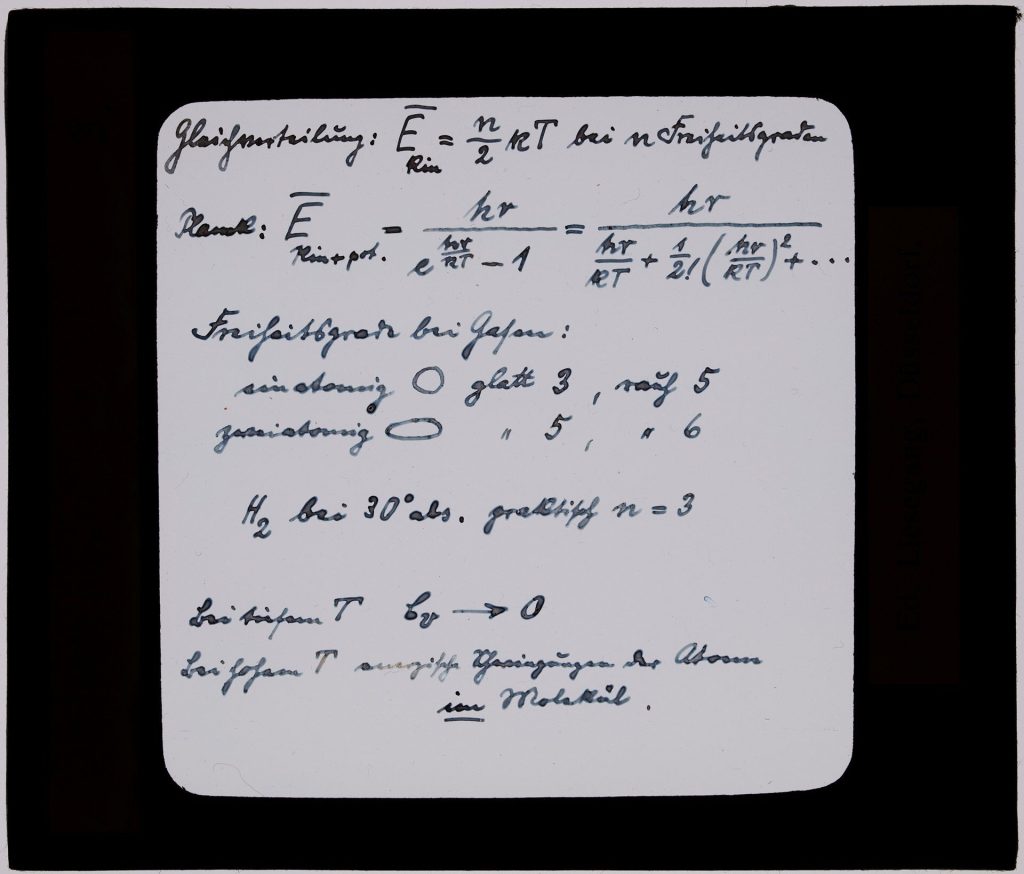 Gleichverteilung: E̅ kin = n/2 kT bei n Freiheitsgraden
Planck: E̅ kin+pot. = hν / (e^(hν/kT) − 1) = hν / (hν/kT + 1/2! (hν/kT)² + ...
Freiheitsgrade bei Gasen:
einatomig glatt 3, rauh 5
zweiatomig " 5, " 6
H₂ bei 30° abs. praktisch n = 3
Bei tiefem T Cv → 0
Bei hohem T energische Schwingungen der Atome
im Molekül.
Ed. Liesegang, Düsseldorf.